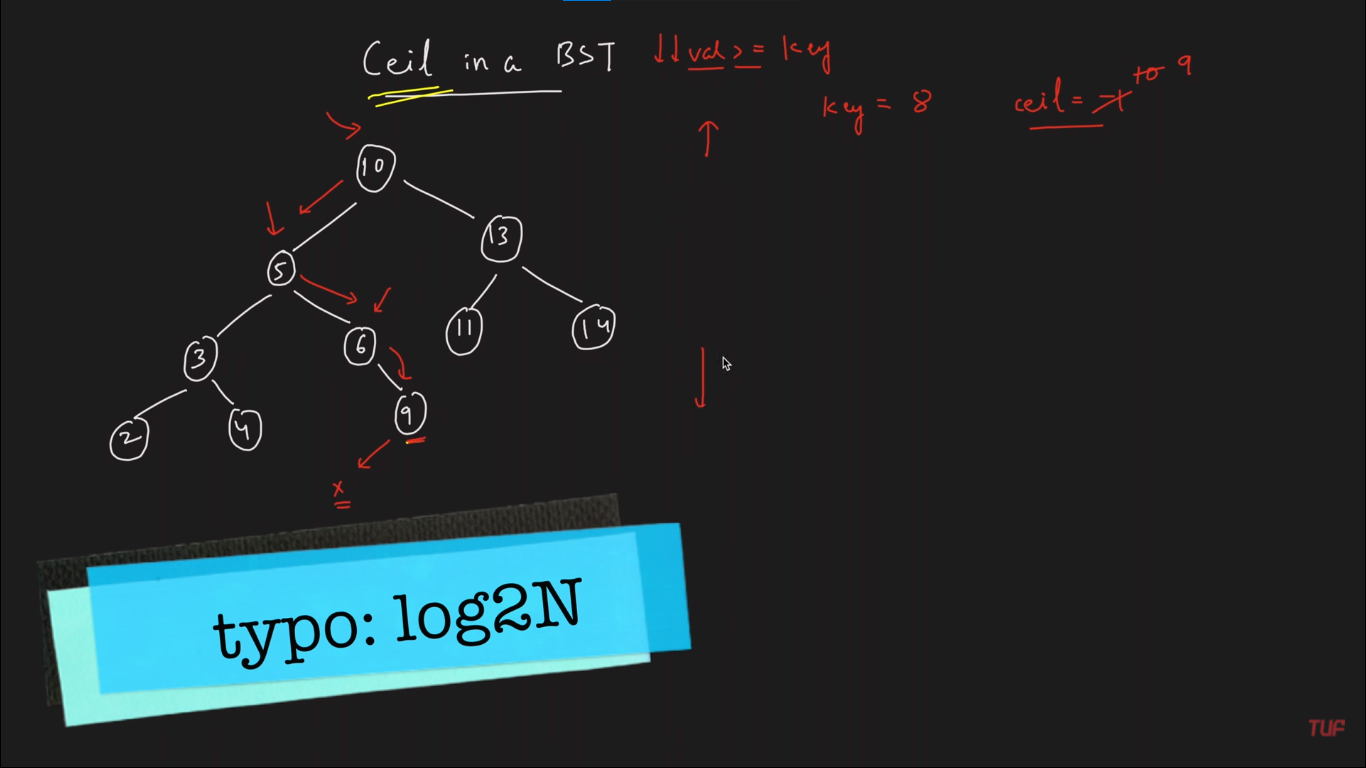 Ceil in a BST
↓↓ val >= key
key = 8
ceil = -1 10 9
10
5
13
3
6
11
14
2
4
9
x
typo: log2N
TUF